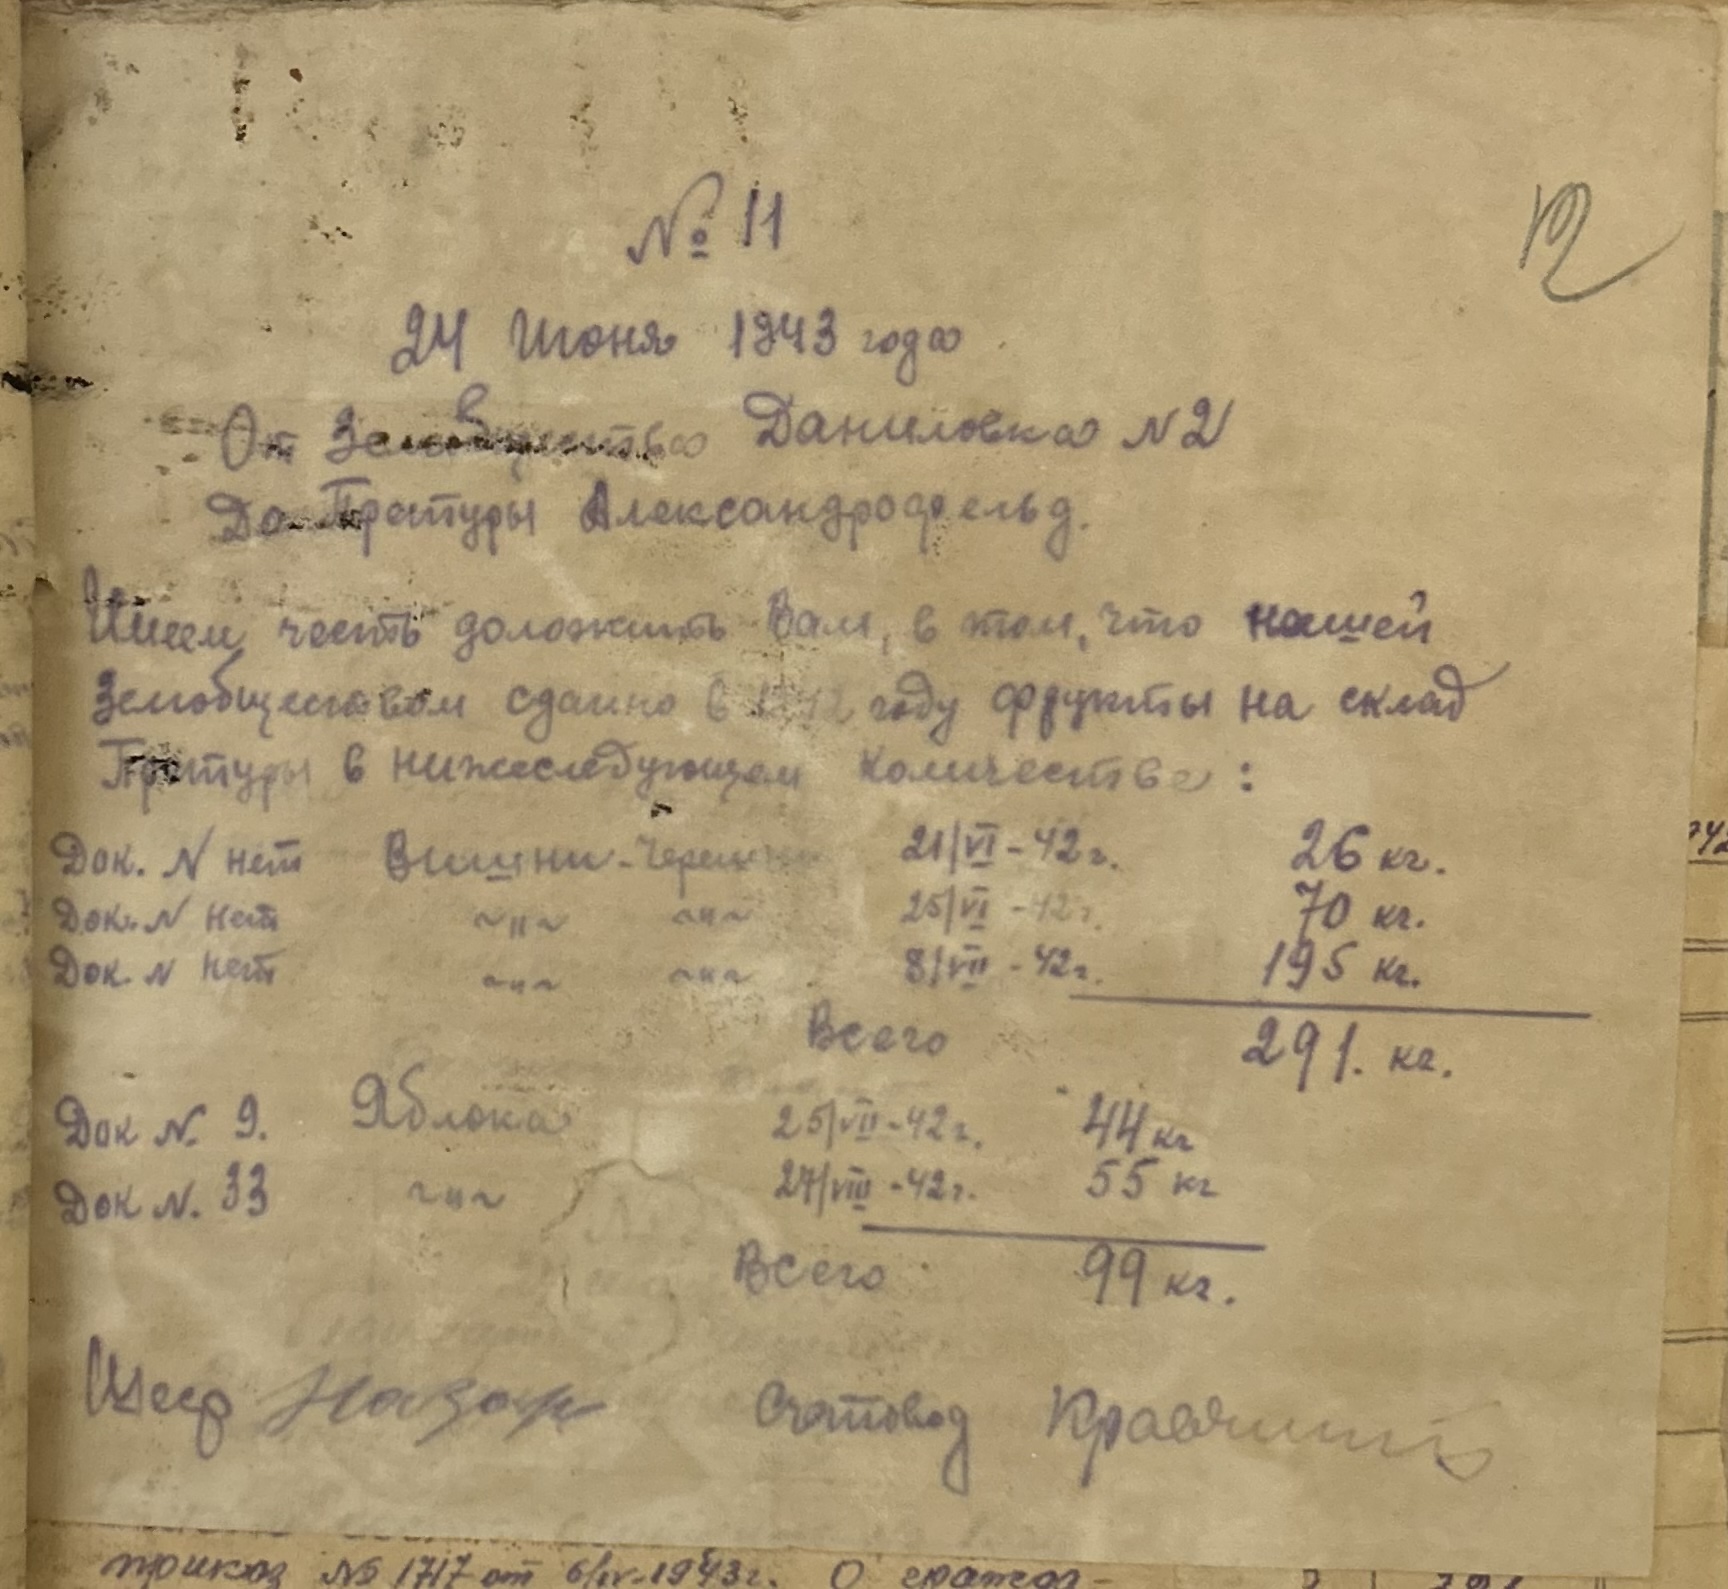 № 11
12
24 Июня 1943 года
От Земобщества Даниловка N2
До Претуры Александрофельд.
Имеем честь доложить Вам, в том, что нашей
Земобществом сданно в 1942 году фрукты на склад
Претуры в нижеследующем количестве:
Док. N нет Вишни-Черешни 21/VI-42г. 26 кг.
Док. N нет ~"~ ~"~ 25/VI-42г. 70 кг.
Док. N нет ~"~ ~"~ 8/VII-42г. 195 кг.
Всего 291. кг.
Док N. 9. Яблока 25/VII-42г. 44 кг
Док N. 33 ~"~ 27/VIII-42г. 55 кг
Всего 99 кг.
Шеф Назар Счетовод
приказ № 1717 от 6/IV-1943г. О